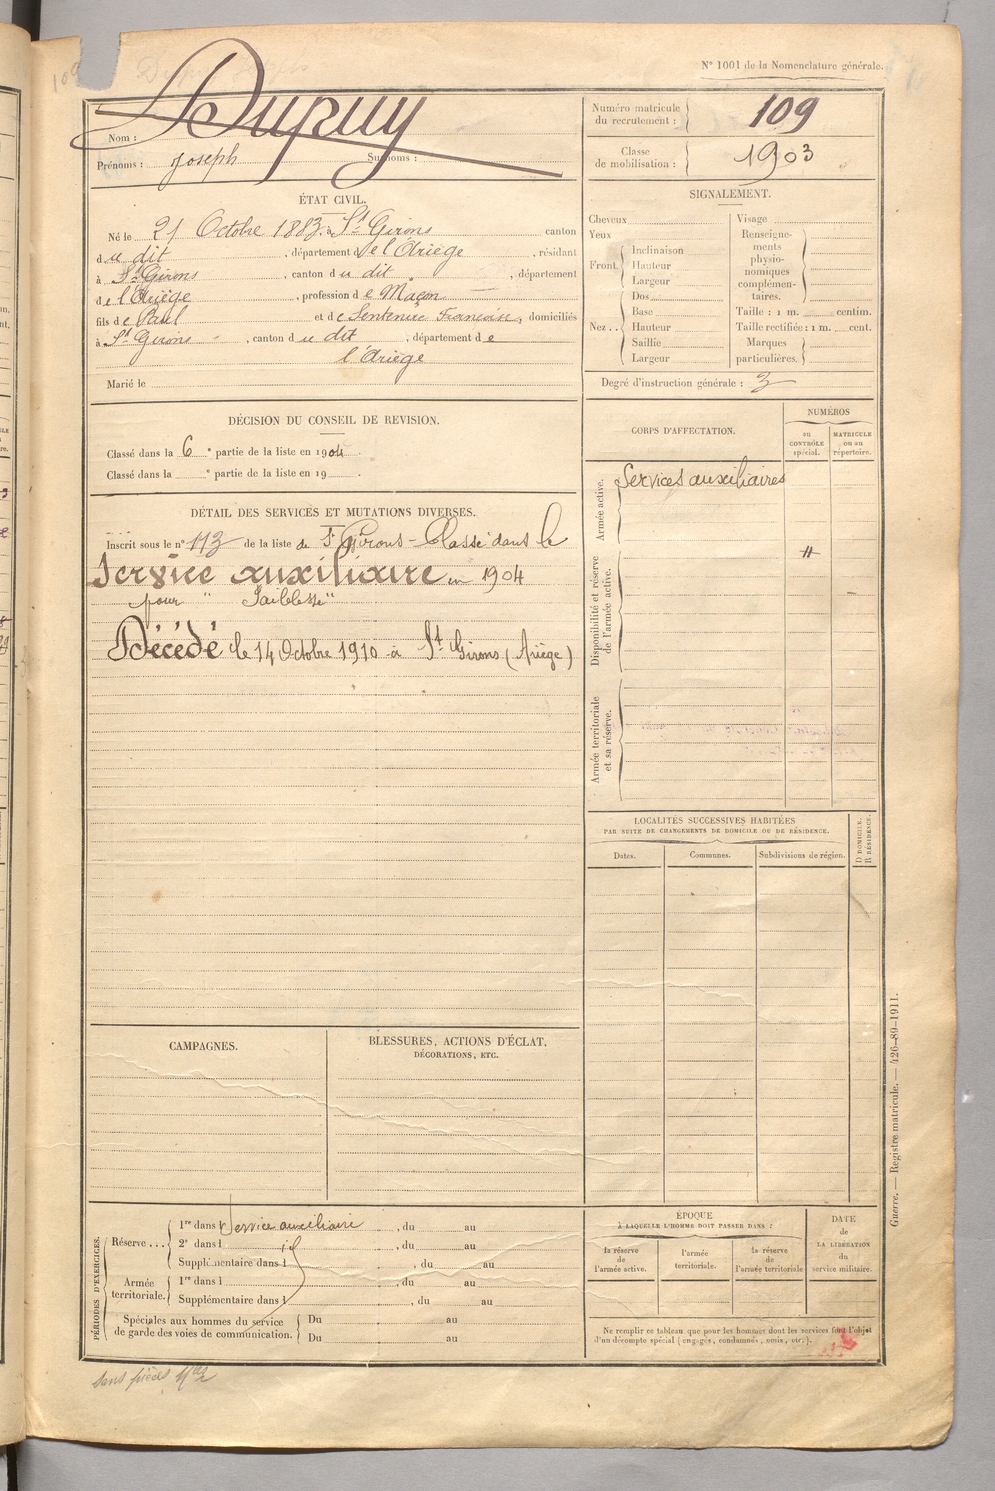 N° 1001 de la Nomenclature générale.
Dupuy
Nom :
Prénoms : Joseph Surnoms :
Numéro matricule du recrutement : 109
Classe de mobilisation : 1903
ÉTAT CIVIL.
Né le 21 Octobre 1883, à St Girons canton
du dit, département de l'Ariège, résidant
à St Girons, canton du dit, département
de l'Ariège, profession de Maçon
fils de Paul et de Sentenac Françoise, domiciliés
à St Girons, canton du dit, département de
l'Ariège
Marié le
SIGNALEMENT.
Cheveux
Yeux
Front Inclinaison
Hauteur
Largeur
Nez .. Dos
Base
Hauteur
Saillie
Largeur
Visage
Renseignements physionomiques complémentaires.
Taille : 1 m. centim.
Taille rectifiée : 1 m. cent.
Marques particulières.
Degré d'instruction générale : 3
DÉCISION DU CONSEIL DE REVISION.
Classé dans la 6e partie de la liste en 1904.
Classé dans la e partie de la liste en 19 .
DÉTAIL DES SERVICES ET MUTATIONS DIVERSES.
Inscrit sous le n° 113 de la liste de St Girons - Classé dans le
Service auxiliaire en 1904
pour " Faiblesse"
Décédé le 14 Octobre 1910 à St Girons (Ariège)
CORPS D'AFFECTATION.
NUMÉROS
au CONTRÔLE spécial.
MATRICULE ou au répertoire.
Armée active.
Services auxiliaires
Disponibilité et réserve de l'armée active.
Armée territoriale et sa réserve.
LOCALITÉS SUCCESSIVES HABITÉES
PAR SUITE DE CHANGEMENTS DE DOMICILE OU DE RÉSIDENCE.
Dates.
Communes.
Subdivisions de région.
D DOMICILE.
R RÉSIDENCE.
CAMPAGNES.
BLESSURES, ACTIONS D'ÉCLAT,
DÉCORATIONS, ETC.
PÉRIODES D'EXERCICES.
Réserve ... 1re dans Service auxiliaire , du au
2e dans l , du au
Supplémentaire dans l , du au
Armée territoriale. 1re dans l , du au
Supplémentaire dans l , du au
Spéciales aux hommes du service de garde des voies de communication. Du au
Du au
ÉPOQUE
À LAQUELLE L'HOMME DOIT PASSER DANS :
la réserve de l'armée active.
l'armée territoriale.
la réserve de l'armée territoriale
DATE de LA LIBÉRATION du service militaire.
Ne remplir ce tableau que pour les hommes dont les services font l'objet
d'un décompte spécial (engagés, condamnés, omis, etc.).
Guerre. — Registre matricule. — 426-89-1911.
sans pièces